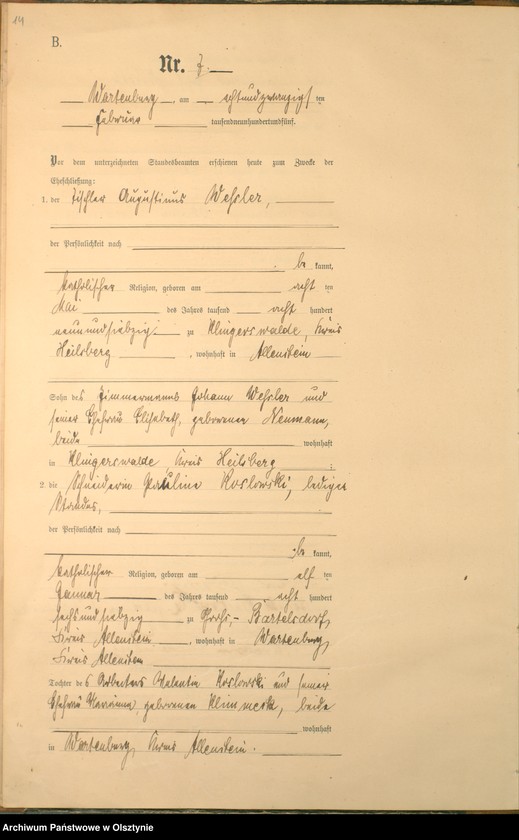 14
B.
Nr. 7.
Wartenburg, am achtundzwanzigsten
Februar tausendneunhundertundfünf.
Vor dem unterzeichneten Standesbeamten erschienen heute zum Zwecke der
Eheschließung:
1. der Tischler Augustinus Wessler,
der Persönlichkeit nach
be kannt,
katholischer Religion, geboren am acht ten
Mai des Jahrs tausend acht hundert
neunundsiebzig zu Klingerswalde, Kreis
Heilsberg, wohnhaft in Allenstein
Sohn des Zimmermanns Johann Wessler und
seiner Ehefrau Elisabeth, geborenen Neumann,
beide wohnhaft
in Klingerswalde, Kreis Heilsberg;
2. die Schneiderin Pauline Koslowski, ledigen
Standes,
der Persönlichkeit nach
be kannt,
katholischer Religion, geboren am elf ten
Januar des Jahrs tausend acht hundert
sechsundsiebzig zu Groß-Bartelsdorf,
Kreis Allenstein, wohnhaft in Wartenburg,
Kreis Allenstein
Tochter des Arbeiters Valentin Koslowski und seiner
Ehefrau Marianna, geborenen, beide
wohnhaft
in Wartenburg, Kreis Allenstein.
Archiwum Państwowe w Olsztynie